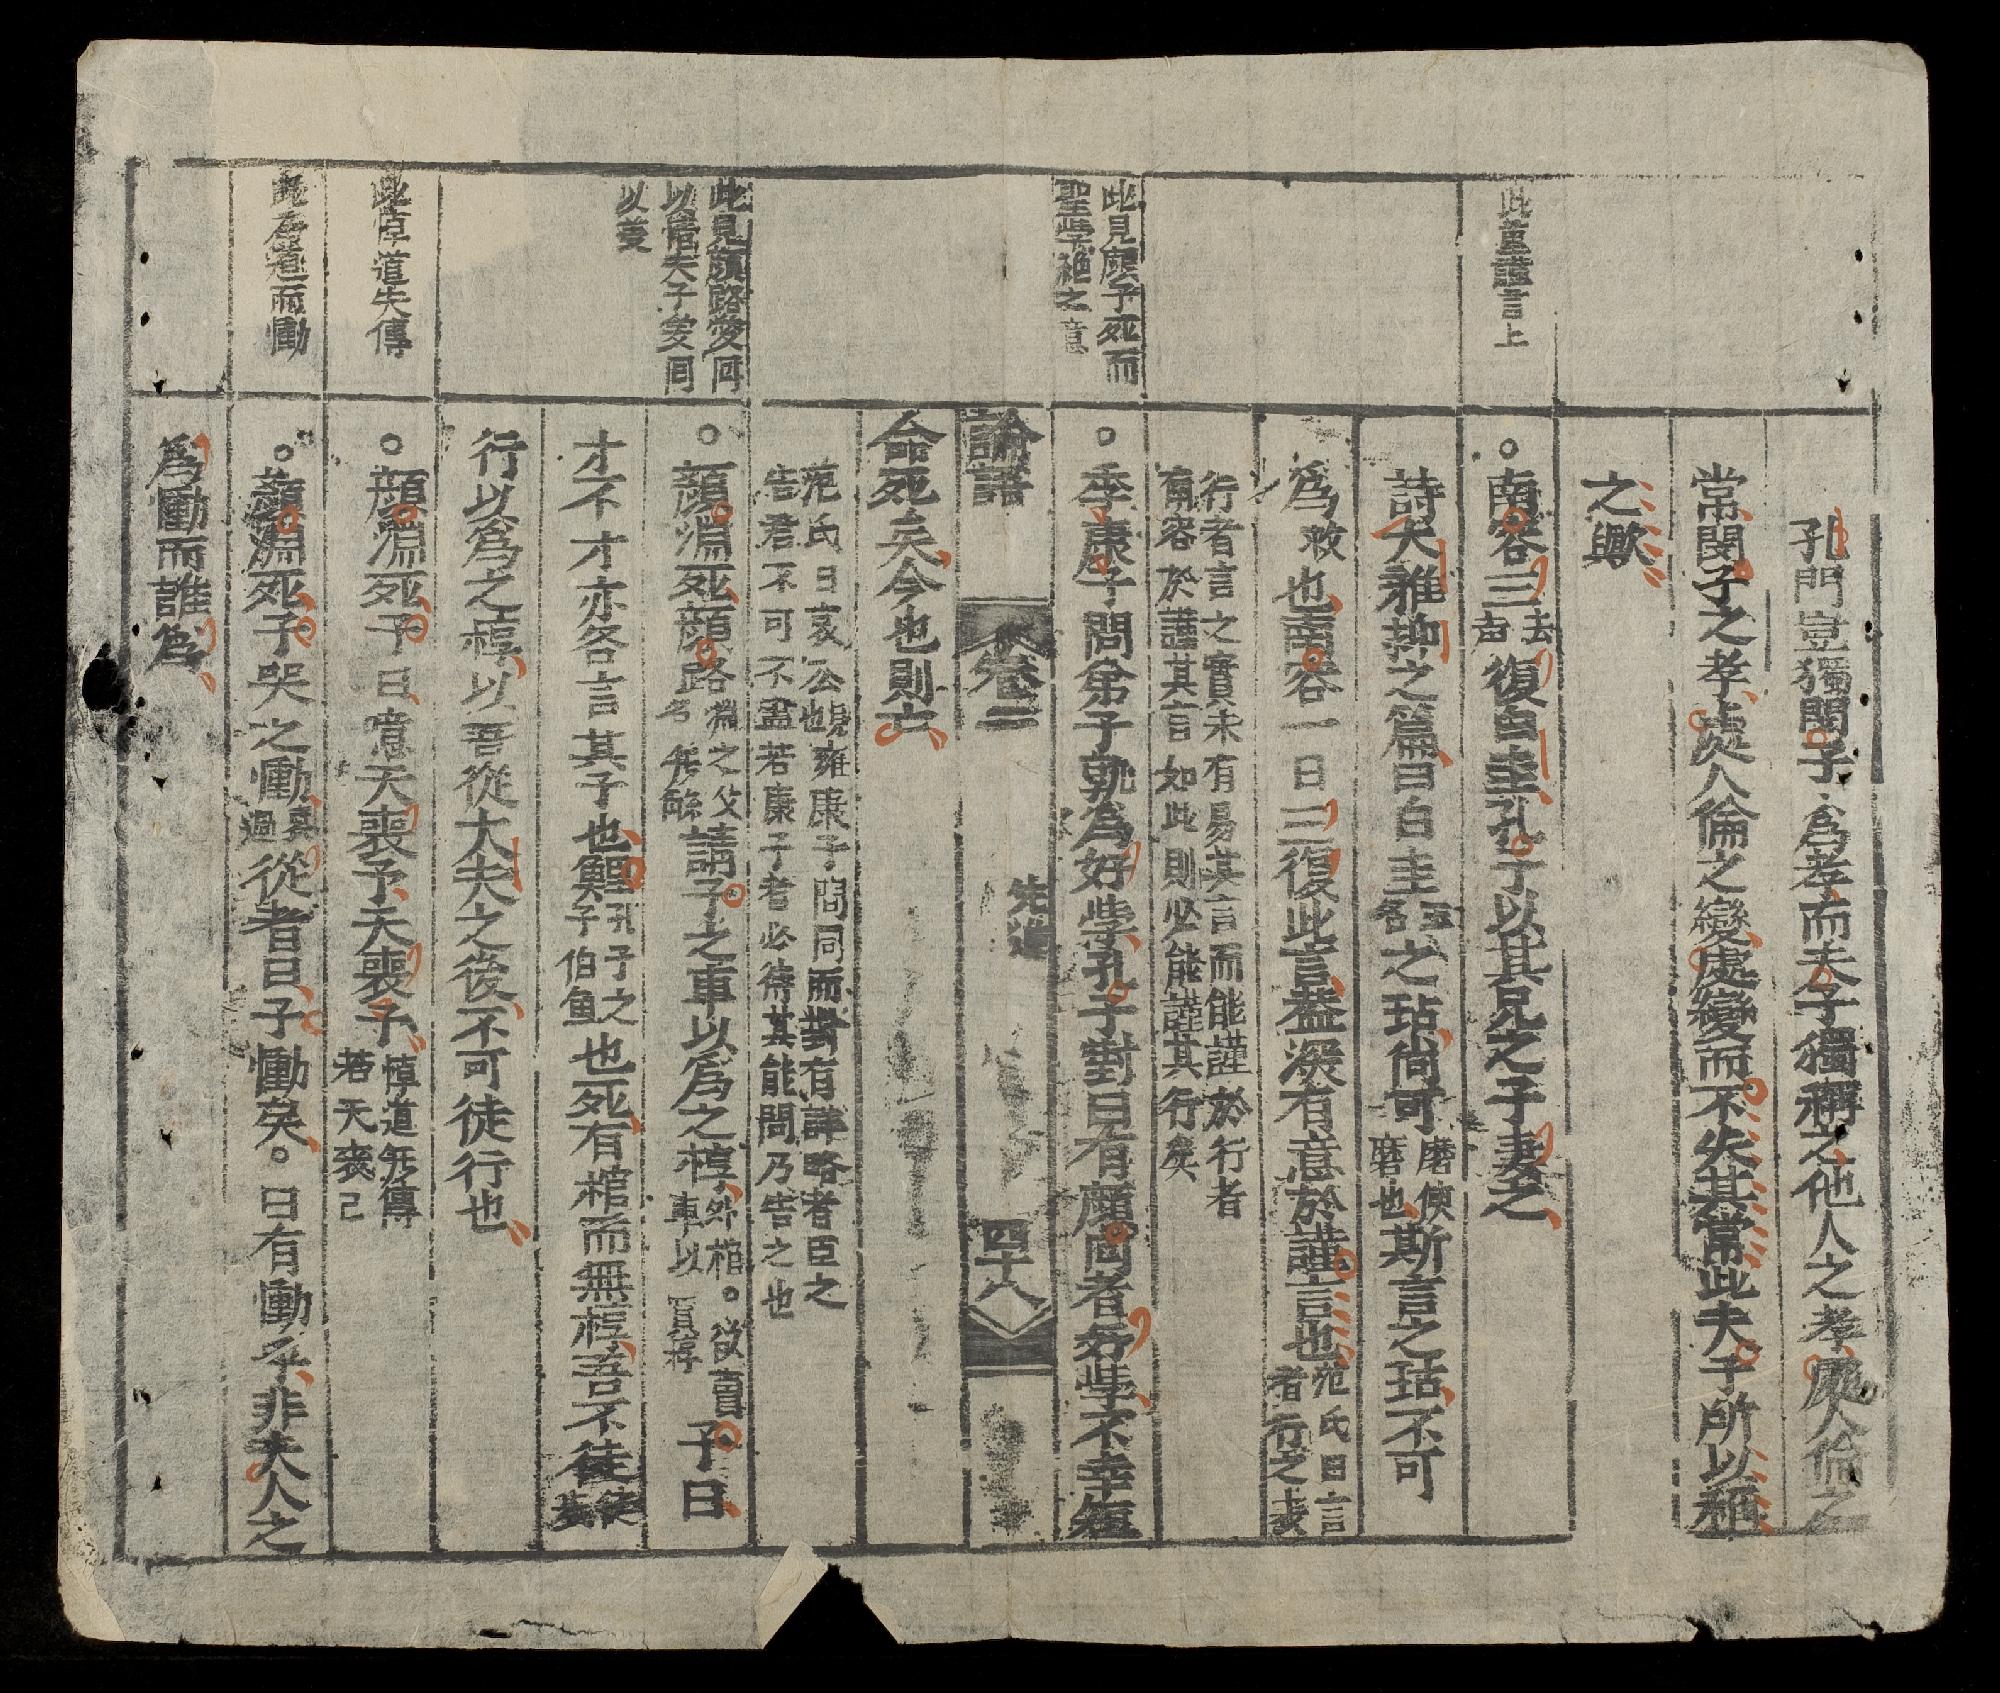 孔門豈獨閔子為孝而夫子獨稱之他人之孝處人倫之
常閔子之孝處人倫之變處變而不失其常此夫子所以稱
之歟
此葉謹言上
○南容三去声復白圭孔子以其兄之子妻之
詩大雅抑之篇曰白圭玉名之玷尚可磨使磨也斯言之玷不可
為救也南容一日三復此言蓋深有意於謹言也范氏曰言者行之表
行者言之實未有易其言而能謹於行者
南容於謹其言如此則必能謹其行矣
此見顏子死而
聖學絶之意
○季康子問弟子孰為好孝孔子對曰有顏囘者好孝不幸短
論語 卷二 先進 四十八
命死矣今也則亡
范氏曰哀公也晚雍康子問同而對有詳略者臣之
告君不可不盡若康子者必待其能問乃告之也
此見顏路愛囘
以信夫子愛囘
以㐮
○顏淵死顏路淵之父名無繇請子之車以為之椁外棺○欲賣車以買椁子曰
才不才亦各言其子也鯉孔子之子伯魚也死有棺而無椁吾不徒
行以為之椁以吾從大夫之後不可徒行也
此悼道失傳
○顏淵死子曰噫天喪予天喪予悼道无傳若天喪己
此為道而慟
○顏淵死子哭之慟哀過從者曰子慟矣○曰有慟乎非夫人之
為慟而誰為